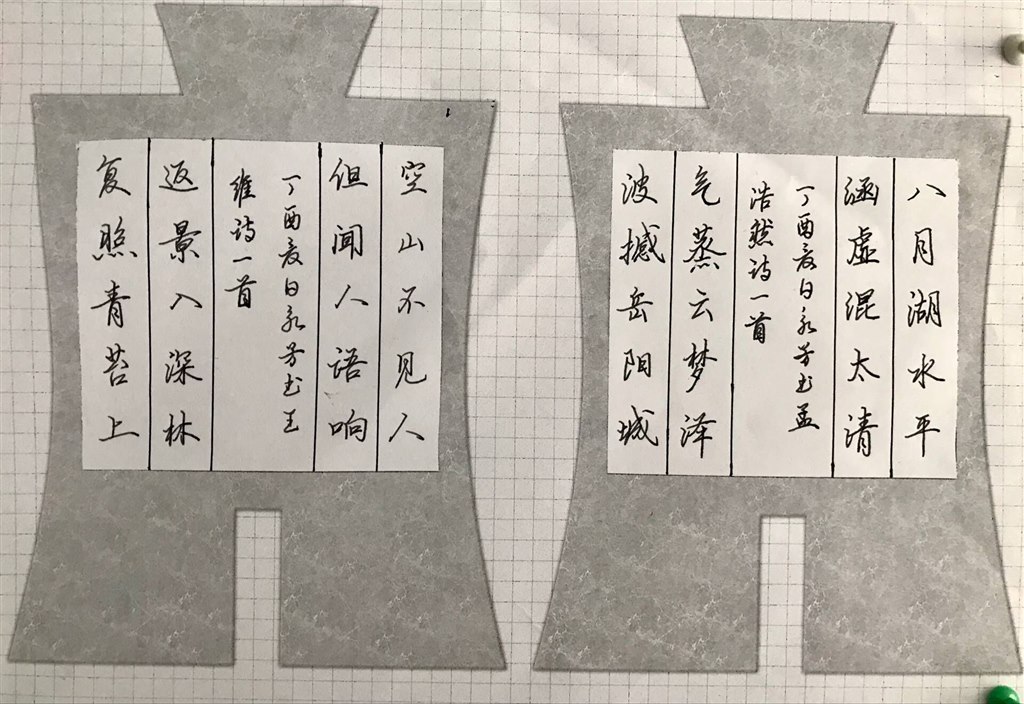 八月湖水平
涵虚混太清
丁酉夏日永芳书孟
浩然诗一首
气蒸云梦泽
波撼岳阳城
空山不见人
但闻人语响
丁酉夏日永芳书王
维诗一首
返景入深林
复照青苔上